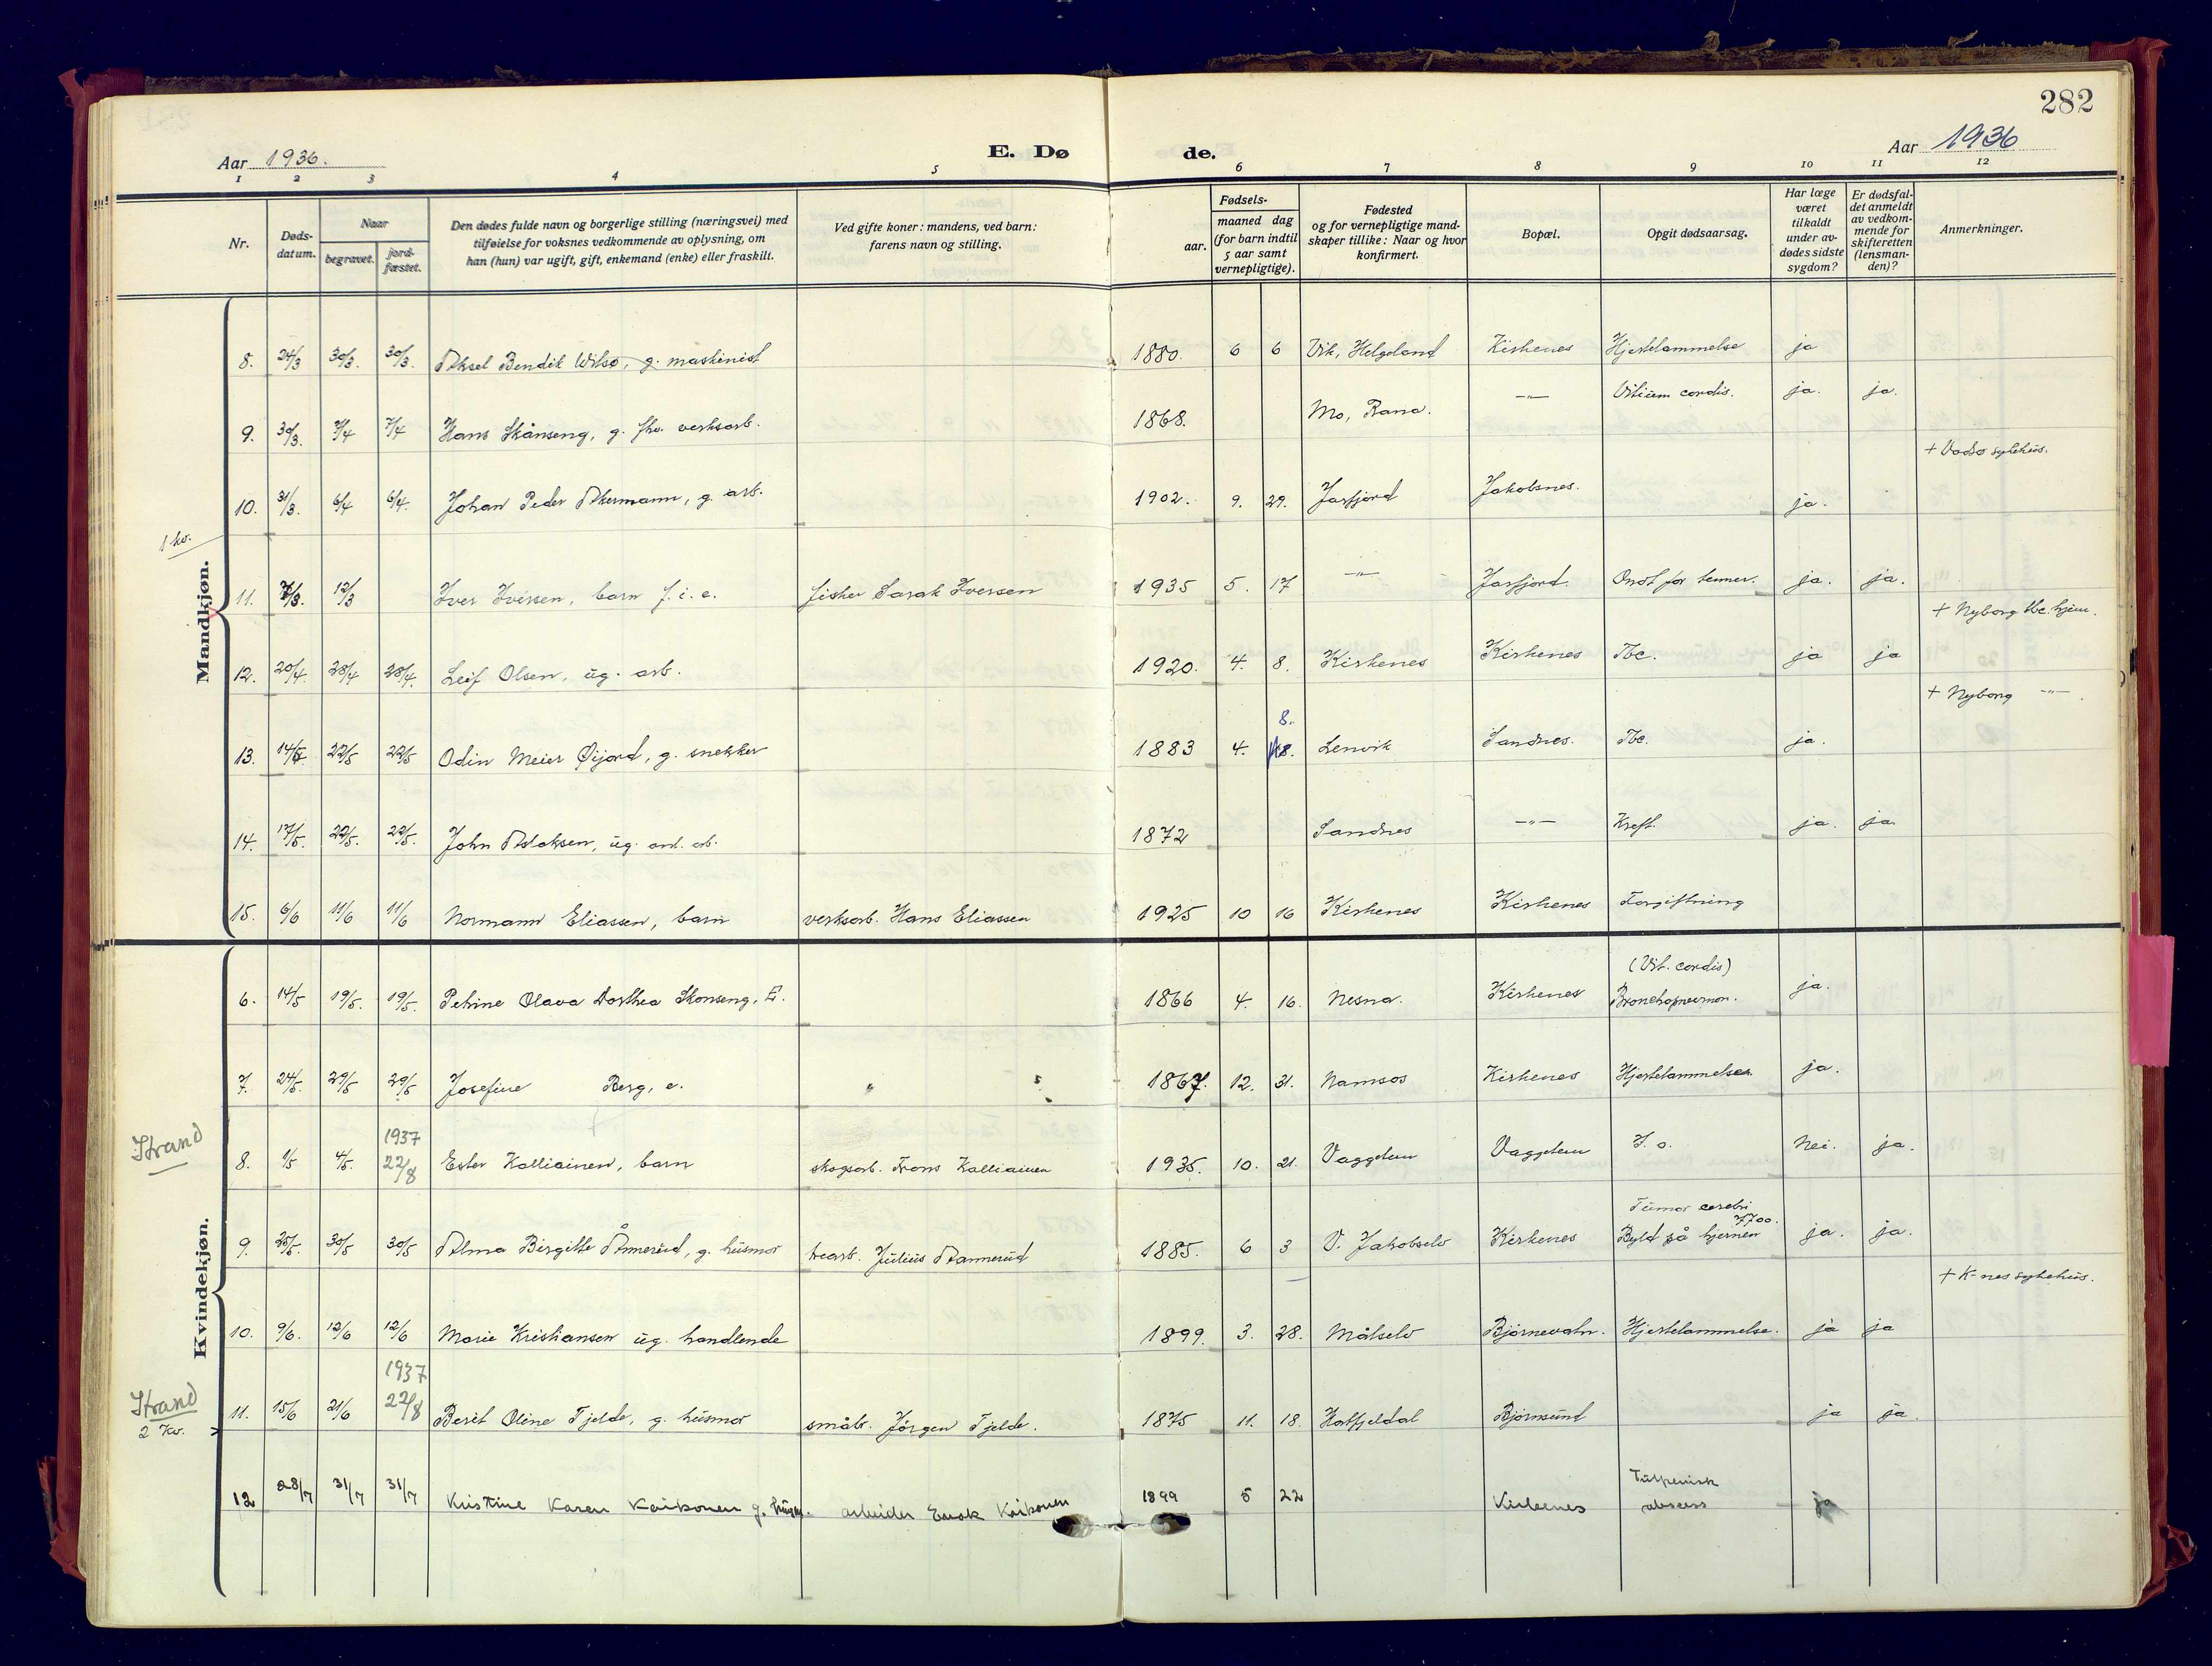 282
Aar 1936.
E. Dø de.
Aar 1936
1 2 3 4 5 6 7 8 9 10 11 12
Nr.
Døds-
datum.
Naar
begravet.
jord-
fæstet.
Den dødes fulde navn og borgerlige stilling (næringsvei) med
tilføielse for voksnes vedkommende av oplysning, om
han (hun) var ugift, gift, enkemand (enke) eller fraskilt.
Ved gifte koner: mandens, ved barn:
farens navn og stilling.
Fødsels-
aar.
maaned dag
(for barn indtil
5 aar samt
vernepligtige).
Fødested
og for vernepligtige mand-
skaper tillike: Naar og hvor
konfirmert.
Bopæl.
Opgit dødsaarsag.
Har læge
været
tilkaldt
under av-
dødes sidste
sygdom?
Er dødsfal-
det anmeldt
av vedkom-
mende for
skifteretten
(lensman-
den)?
Anmerkninger.
Mandkjøn.
8. 24/3 30/3. 30/3. Aksel Bendik Wilsø, g. maskinist 1880. 6 6 Vik, Helgeland Kirkenes Hjertelammelse ja
9. 30/3. 7/4 7/4 Hans Skånseng, g. fhv. verksarb. 1868. Mo, Rana. —"— Vitium cordis. ja. ja.
+ Vadsø sykehus.
10. 31/3. 6/4 6/4. Johan Peder Akermann, g. arb. 1902. 9. 29. Jarfjord Jakobsnes. ja.
1 kv.
11. 7/3. 12/3 Iver Iversen, barn f. i. e. fisker Sarak Iversen 1935 5. 17 —"— Jarfjord. Ondt for tenner. ja. ja.
+ Nyborg tbc. hjem.
12. 20/4. 28/4 28/4. Leif Olsen, ug. arb. 1920. 4. 8. Kirkenes Kirkenes Tbc. ja ja
+ Nyborg —"—.
8.
13. 14/5 22/5 22/5 Odin Meier Øijord, g. snekker 1883 4. 18. Lenvik Sandnes. Tbc. ja.
14. 17/5. 22/5. 22/5. John Aslaksen, ug. anl. arb. 1872 Sandnes —"— Kreft. ja. ja.
15. 6/6 11/6 11/6 Normann Eliassen, barn verksarb. Hans Eliassen 1925 10 16 Kirkenes Kirkenes Forgiftning
Kvindekjøn.
(Vit. cordis)
6. 14/5 19/5. 19/5. Petrine Olava Dorthea Skonseng, E. 1866 4. 16. Nesna. Kirkenes Bronchopneumon. ja.
7. 24/5. 29/5 29/5 Josefine Berg, e. " 1867. 12. 31. Namsos Kirkenes Hjertelammelse. ja.
Strand
1937
8. 1/5 4/5. 22/8 Ester Kalliainen, barn skogsarb. Frans Kalliainen 1935. 10. 21. Vaggetem Vaggetem Nei. ja.
Tumor cerebri
7700.
9. 25/5. 30/5 30/5 Alma Birgitte Ånnerud, g. husmor Julius Aannerud 1885. 6 3 V. Jakobselv Kirkenes Byld på hjernen ja. ja.
+ K-nes sykehus.
10. 9/6. 12/6 12/6 Marie Kristiansen ug. handlende 1899. 3. 28. Målselv Bjørnevatn. Hjertelammelse. ja ja
1937
Strand
2 Kv.
11. 15/6 21/6 22/8 Berit Oline Fjelde, g. husmor småbr. Jørgen Fjelde. 1875 11. 18. Hatfjeldal Bjørnsund ja ja.
12 28/7 31/7 31/7 Kristine Karen Kaikonen g. arbeider Enok Kaikonen 1899 5 22 Kirkenes abscess ja